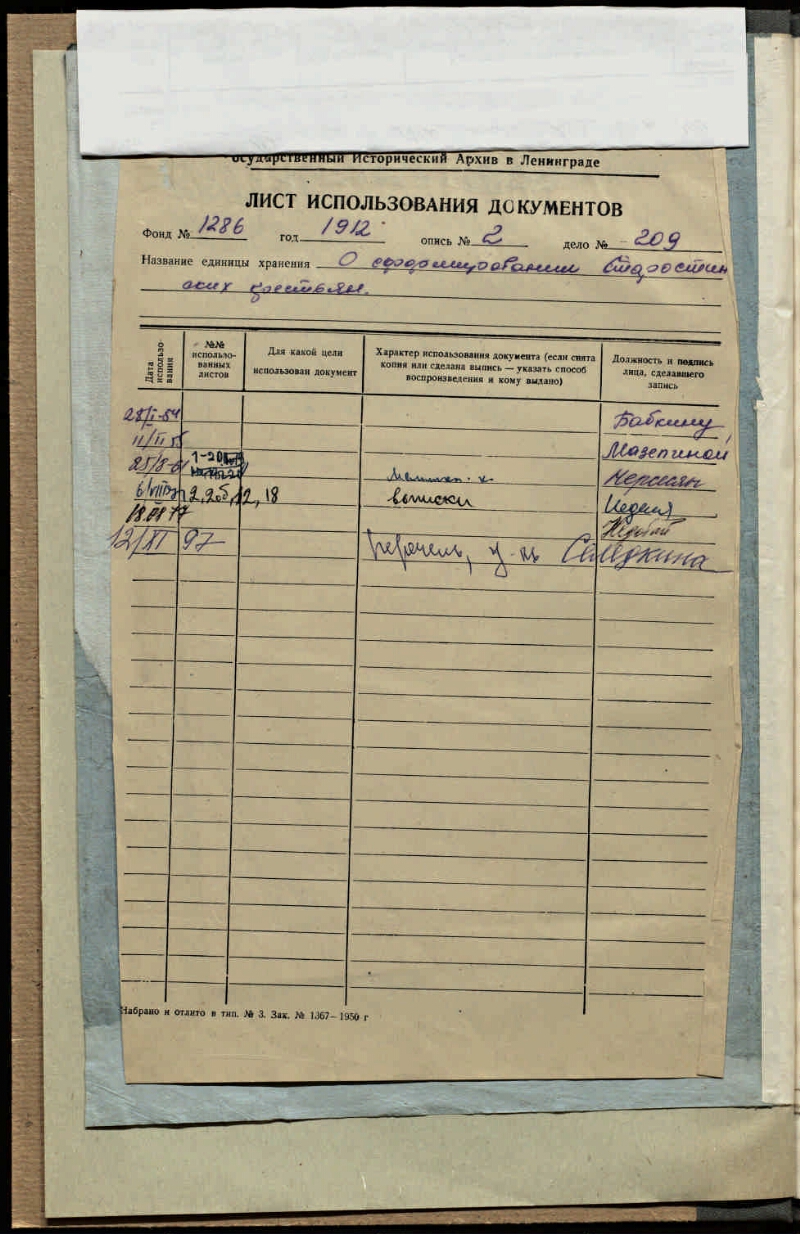 осударственный Исторический Архив в Ленинграде
ЛИСТ ИСПОЛЬЗОВАНИЯ ДОКУМЕНТОВ
Фонд № 1286 год 1912 опись № 2 дело № 209
Название единицы хранения О сформировании старостин
ских крестьян.
Дата использования
№№ использованных листов
Для какой цели использован документ
Характер использования документа (если снята копия или сделана выпись — указать способ воспроизведения и кому выдано)
Должность и подпись лица, сделавшего запись
28/I-54 Бабкину
11/II Мазепиной
25/8 1-20
6/VIII 2, 2об, 12, 18 выписки Неделя
18.08 77
12/XI 97 Перечень,
Набрано и отлито в тип. № 3. Зак. № 1367—1950 г